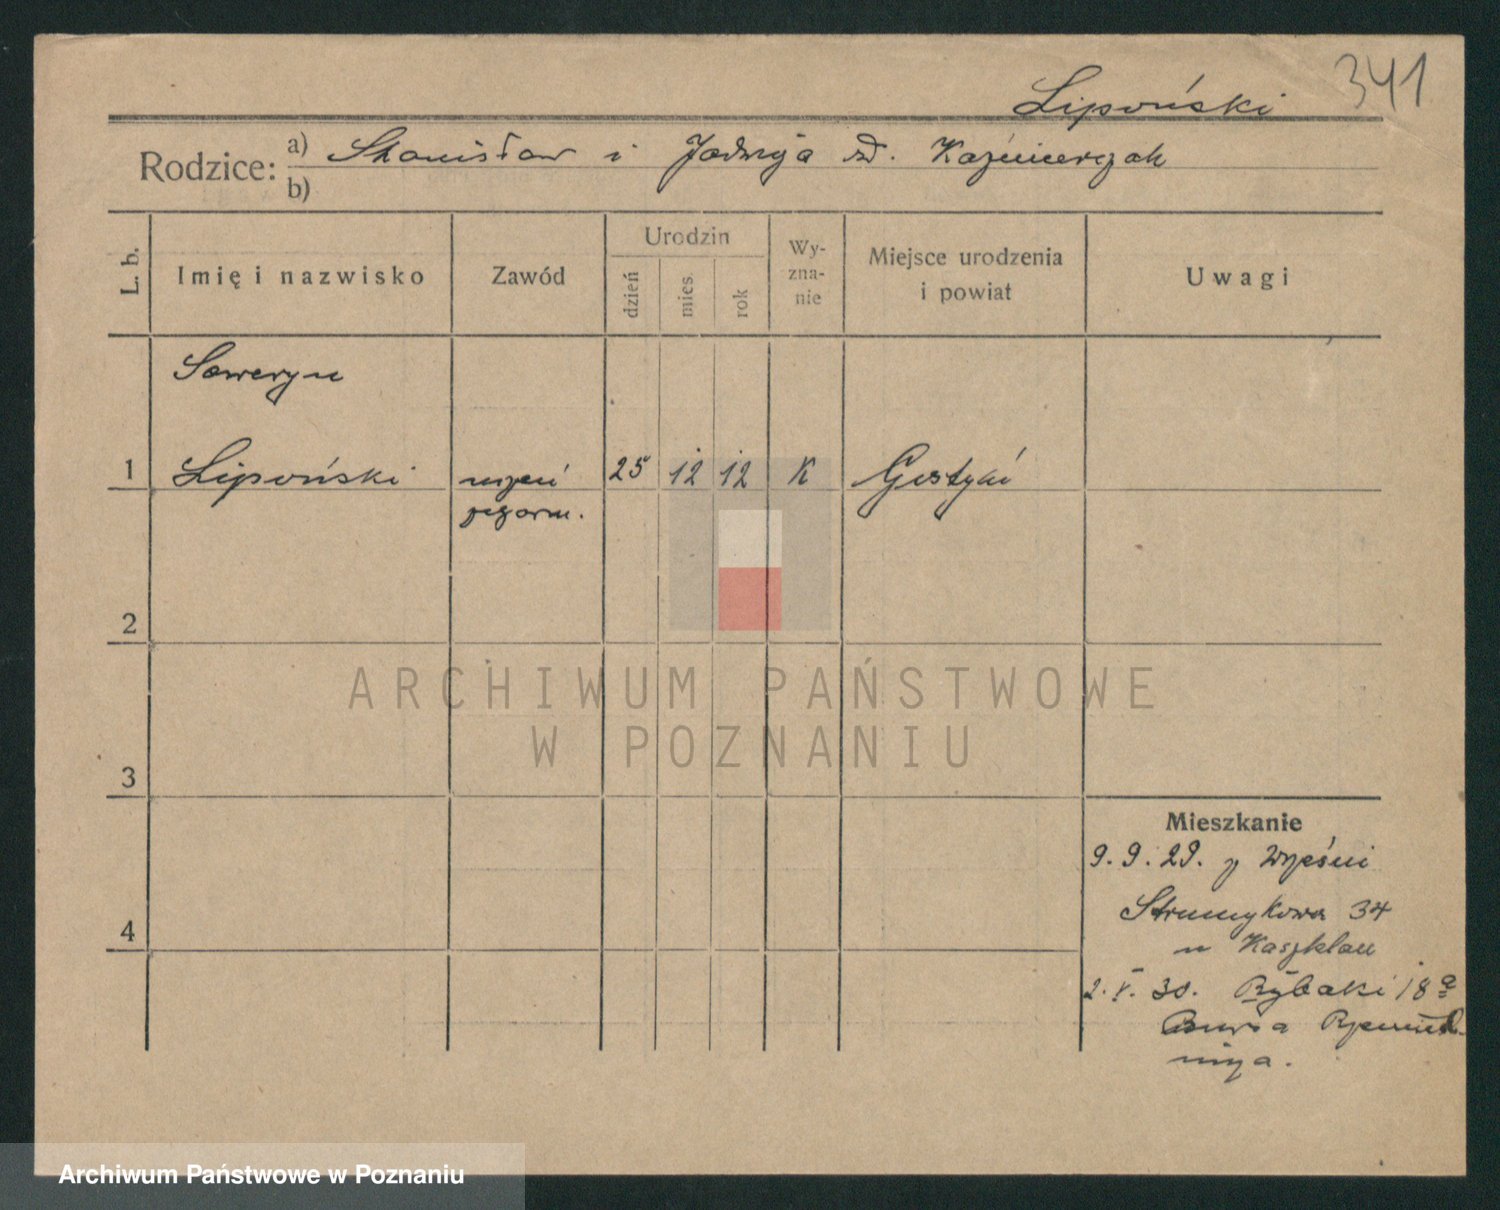 341
Lipoński
Rodzice: a) Stanisław i Jadwiga zd. Kaźmierczak
b)
L. b.
Imię i nazwisko
Zawód
Urodzin
dzień
mies.
rok
Wy-
zna-
nie
Miejsce urodzenia
i powiat
Uwagi
Seweryn
1 Lipoński uczeń 25 12 12 K Gostyń
zegarm.
2
3
4
Mieszkanie
9.9.29. z Wrześni
Strumykowa 34
u Kaszklau
2.V.30. Rybaki 18a
Bursa Rzemieśl-
nicza.
ARCHIWUM PAŃSTWOWE
W POZNANIU
Archiwum Państwowe w Poznaniu